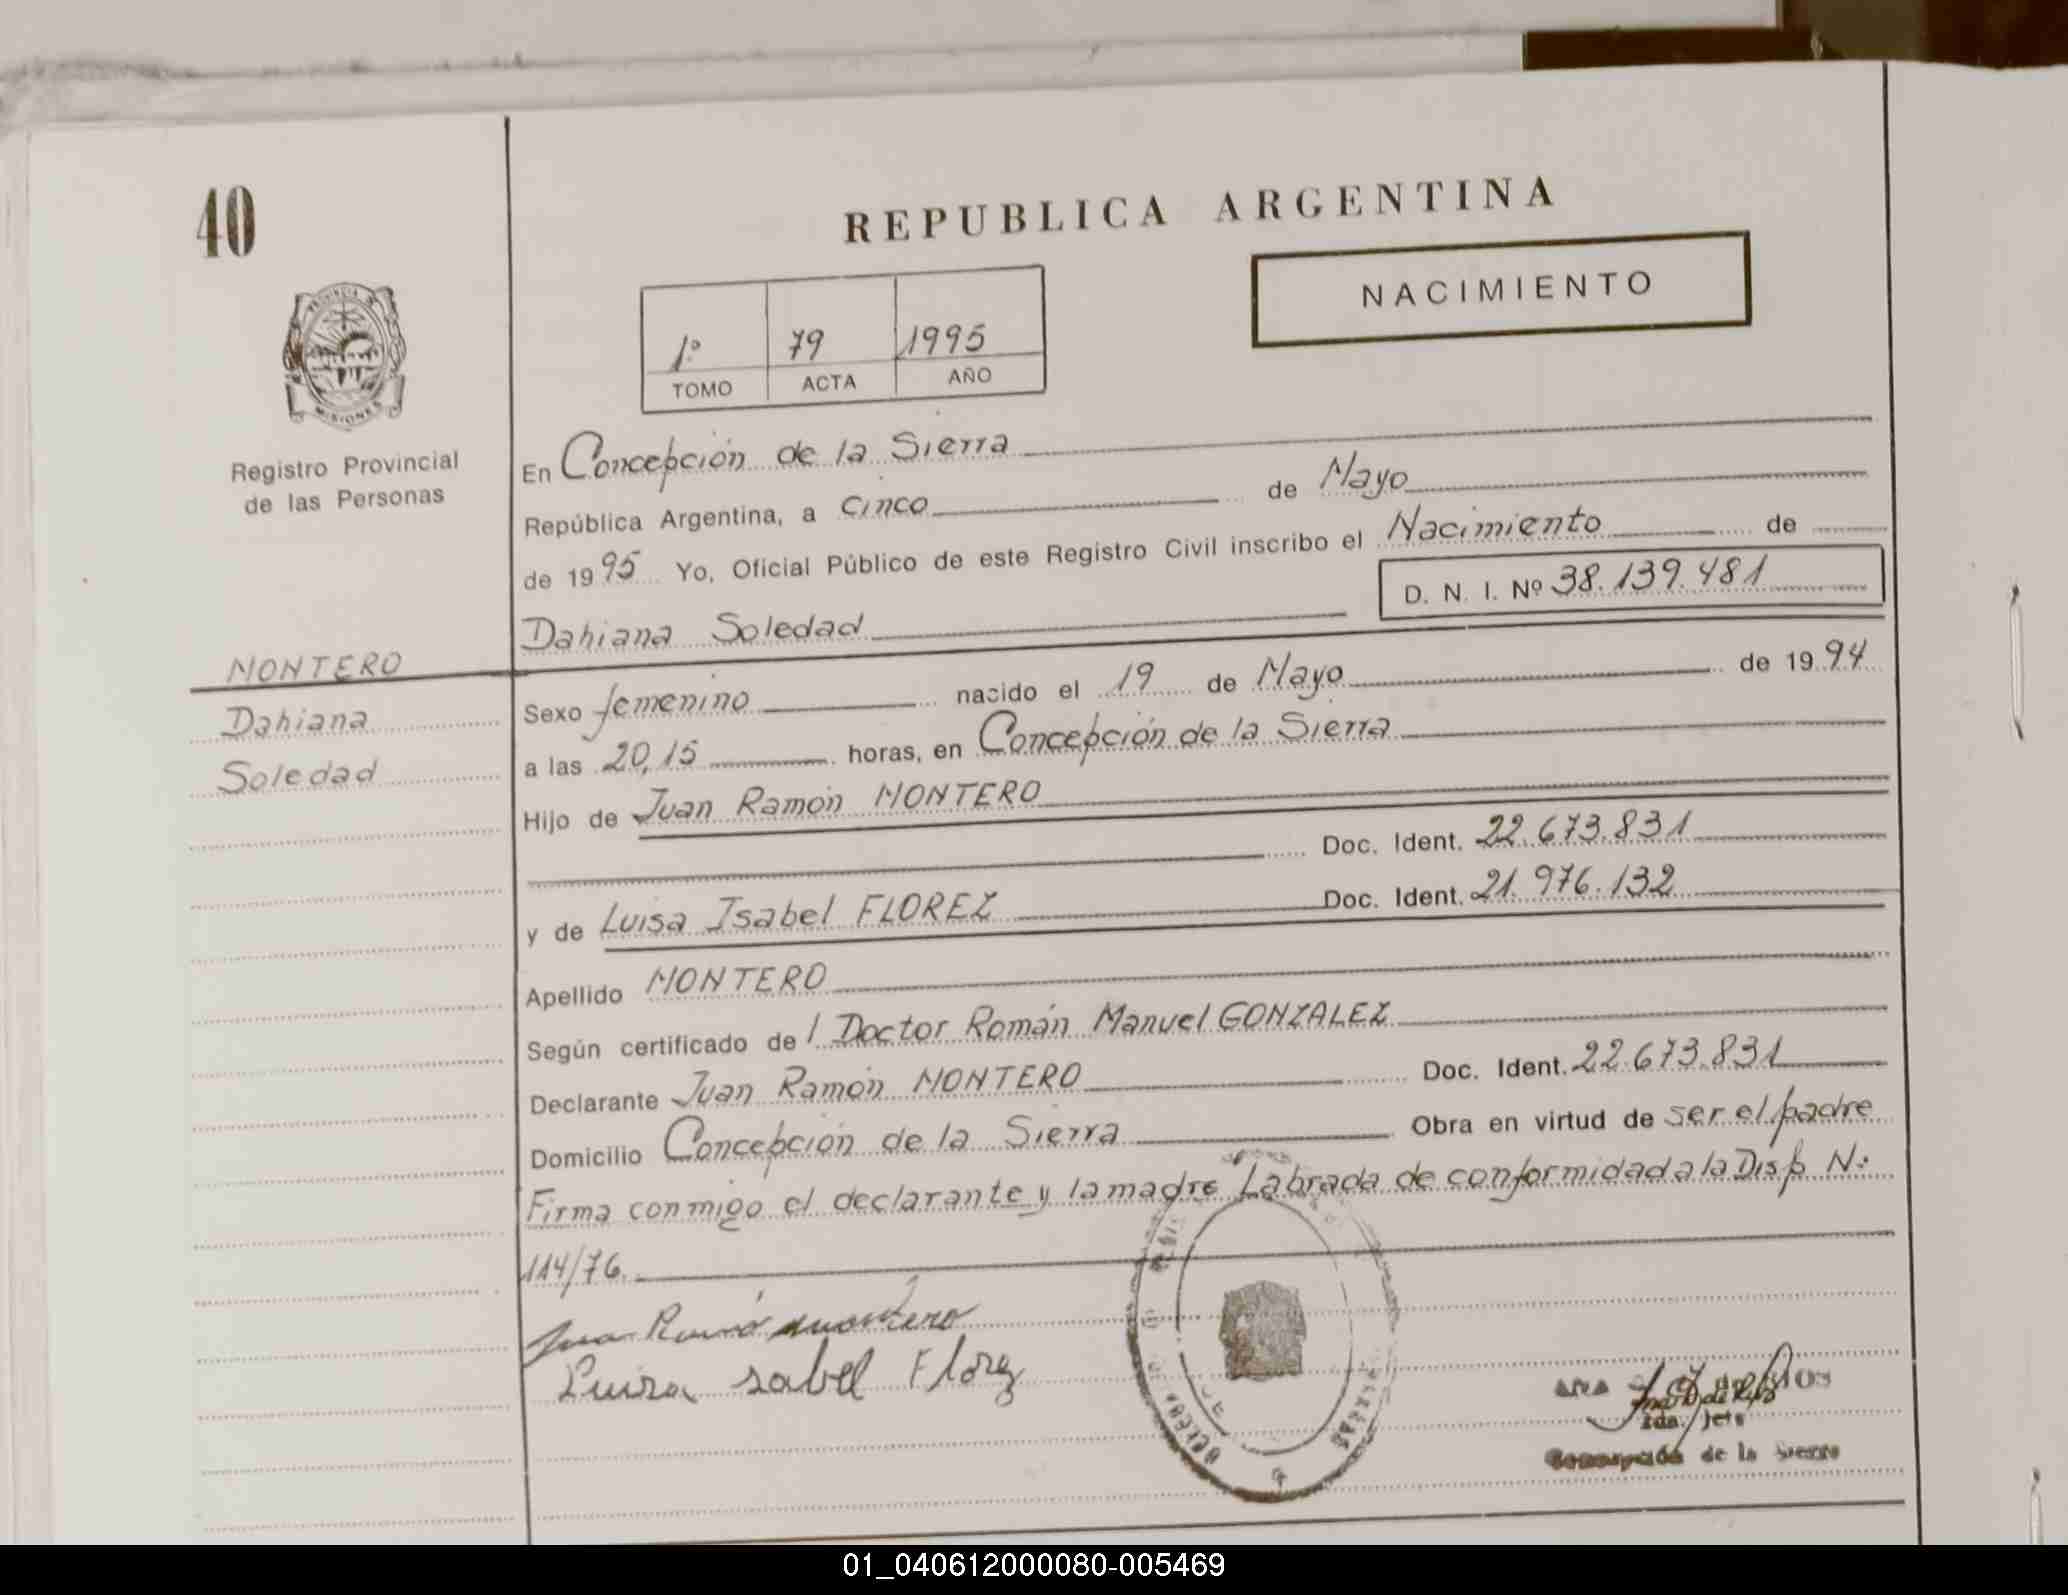 40
REPUBLICA ARGENTINA
NACIMIENTO
1º 79 1995
TOMO ACTA AÑO
PROVINCIA DE
MISIONES
Registro Provincial
de las Personas
En Concepción de la Sierra
República Argentina, a cinco de Mayo
de 1995 Yo, Oficial Público de este Registro Civil inscribo el Nacimiento de
D. N. I. Nº 38.139.481
Dahiana Soledad
MONTERO
Dahiana
Soledad
Sexo femenino nacido el 19 de Mayo de 1994
a las 20,15 horas, en Concepción de la Sierra
Hijo de Juan Ramón MONTERO
Doc. Ident. 22.673.831
y de Luisa Isabel FLOREZ Doc. Ident. 21.976.132
Apellido MONTERO
Según certificado de l Doctor Román Manuel GONZALEZ
Declarante Juan Ramón MONTERO Doc. Ident. 22.673.831
Domicilio Concepción de la Sierra Obra en virtud de ser el padre
Firma conmigo el declarante y la madre Labrada de conformidad a la Disp N:
114/76.
Juan Ramó montero
Luisa sabel Florez
Jefe
Concepción de la Sierra
01_040612000080-005469